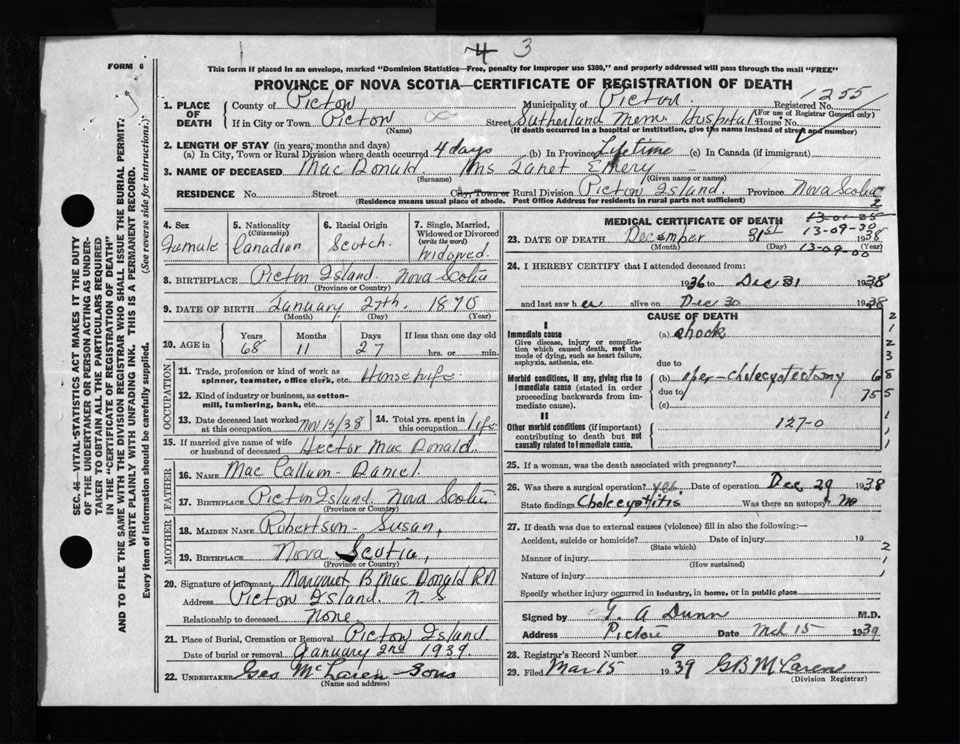 4 3
FORM 6
This form if placed in an envelope, marked "Dominion Statistics—Free, penalty for improper use $300," and properly addressed will pass through the mail "FREE"
PROVINCE OF NOVA SCOTIA—CERTIFICATE OF REGISTRATION OF DEATH
1255
1. PLACE OF DEATH
County of Pictou Municipality of Pictou Registered No.
(For use of Registrar General only)
If in City or Town Pictou Street Sutherland Mem. Hospital House No.
(Name) (If death occurred in a hospital or institution, give the name instead of street and number)
2. LENGTH OF STAY (in years, months and days)
(a) In City, Town or Rural Division where death occurred 4 days (b) In Province Lifetime (c) In Canada (if immigrant)
3. NAME OF DECEASED Mac Donald. Mrs Janet Emery
(Surname) (Given name or names)
RESIDENCE No. Street City, Town or Rural Division Pictou Island. Province Nova Scotia
(Residence means usual place of abode. Post Office Address for residents in rural parts not sufficient)
4. Sex
Female
5. Nationality
(Citizenship)
Canadian
6. Racial Origin
Scotch.
7. Single, Married, Widowed or Divorced
(write the word)
Widowed.
8. BIRTHPLACE Pictou Island. Nova Scotia
(Province or Country)
9. DATE OF BIRTH January 27th. 1870
(Month) (Day) (Year)
10. AGE in
Years Months Days If less than one day old
68 11 27 hrs. or min.
OCCUPATION
11. Trade, profession or kind of work as
spinner, teamster, office clerk, etc. Housewife.
12. Kind of industry or business, as cotton-
mill, lumbering, bank, etc.
13. Date deceased last worked at this occupation Nov 15/38 14. Total yrs. spent in this occupation life
15. If married give name of wife or husband of deceased Hector Mac Donald.
FATHER
16. NAME Mac Callum - Daniel.
17. BIRTHPLACE Pictou Island, Nova Scotia
(Province or Country)
MOTHER
18. MAIDEN NAME Robertson - Susan,
19. BIRTHPLACE Nova Scotia,
(Province or Country)
20. Signature of informant Margaret B Mac Donald RN
Address Pictou Island. N S
Relationship to deceased None
21. Place of Burial, Cremation or Removal Pictou Island
Date of burial or removal January 2nd 1939.
22. UNDERTAKER Geo McLaren Sons
(Name and address)
2
13-01-35
MEDICAL CERTIFICATE OF DEATH
13-09-30
23. DATE OF DEATH December 31st 1938
(Month) (Day) (Year)
13-09-00
24. I HEREBY CERTIFY that I attended deceased from:
1936 to Dec 31 1938
and last saw h er alive on Dec 30 1938
CAUSE OF DEATH
I
Immediate cause
Give disease, injury or complication which caused death, not the mode of dying, such as heart failure, asphyxia, asthenia, etc.
(a) shock
due to
Morbid conditions, if any, giving rise to immediate cause (stated in order proceeding backwards from immediate cause).
(b) oper - cholecystectomy
due to
(c)
II
Other morbid conditions (if important) contributing to death but not causally related to immediate cause.
127-0
25. If a woman, was the death associated with pregnancy?
26. Was there a surgical operation? yes. Date of operation Dec 29 1938
State findings Cholecystitis Was there an autopsy? No
27. If death was due to external causes (violence) fill in also the following:—
Accident, suicide or homicide? Date of injury 19
(State which)
Manner of injury
(How sustained)
Nature of injury
Specify whether injury occurred in industry, in home, or in public place
Signed by G. A Dunn M.D.
Address Pictou Date Mch 15 1939
28. Registrar's Record Number 9
29. Filed Mar 15 1939 GB McLaren
(Division Registrar)
SEC. 46—VITAL-STATISTICS ACT MAKES IT THE DUTY
OF THE UNDERTAKER OR PERSON ACTING AS UNDER-
TAKER TO OBTAIN ALL THE PARTICULARS REQUIRED
IN THE "CERTIFICATE OF REGISTRATION OF DEATH"
AND TO FILE THE SAME WITH THE DIVISION REGISTRAR WHO SHALL ISSUE THE BURIAL PERMIT.
WRITE PLAINLY WITH UNFADING INK. THIS IS A PERMANENT RECORD.
Every item of information should be carefully supplied. (See reverse side for instructions.)